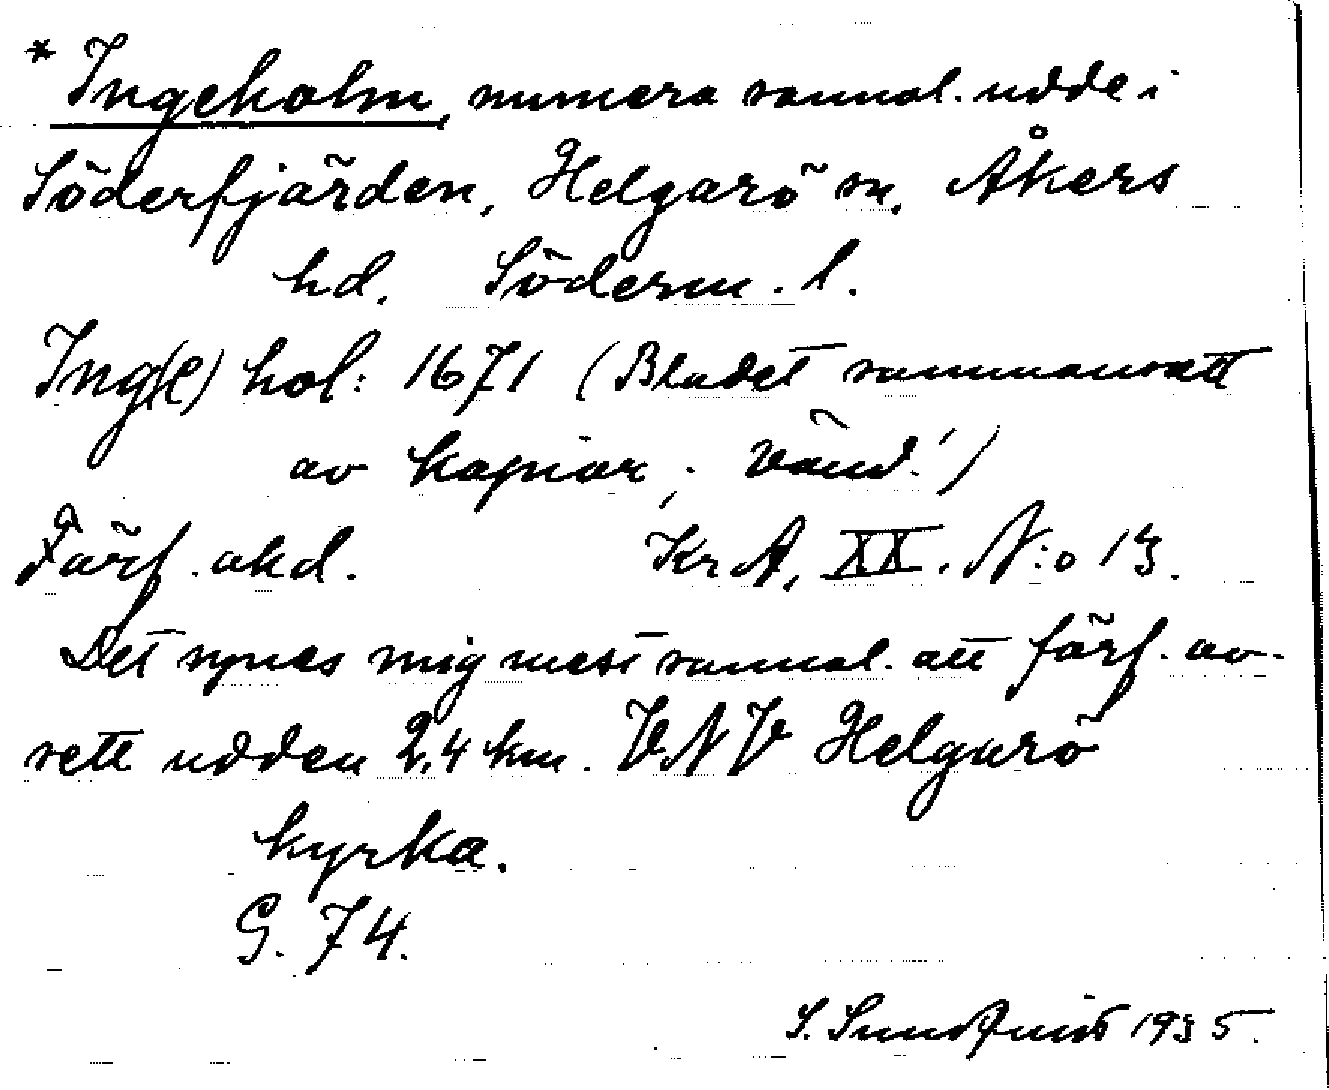 * Ingeholm, numera sannol. udde i
Söderfjärden, Helgarö sn, Åkers
hd. Söderm. l.
Ing(e) hol: 1671 (Bladet sammansatt
av kopior; vänd!)
Färf. okd. Kr A, XX. N:o 13.
Det synes mig mest sannol. att förf. av-
sett udden 2,4 km. VNV Helgarö
kyrka.
G. 74.
S. Sundquist 1935.